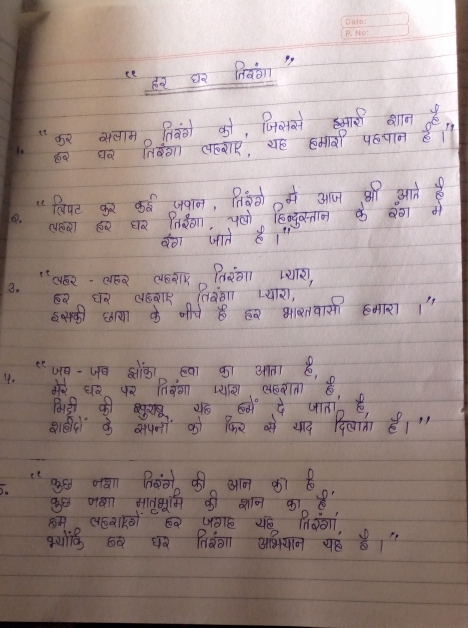 Date:
P. No:
" हर घर तिरंगा "
1. " कर सलाम तिरंगे को, जिससे हमारी शान है,
हर घर तिरंगा लहराए, यह हमारी पहचान है।"
2. " लिपट कर कई जवान, तिरंगे मे आज भी आते है
लहरा हर घर तिरंगा, चलो हिन्दुस्तान के रंग मे
रंग जाते है।"
3. " लहर - लहर लहराए तिरंगा प्यारा,
हर घर लहराए तिरंगा प्यारा,
इसकी छाया के नीचे है हर भारतवासी हमारा ।"
4. " जब - जब झोंका हवा का आता है,
मेरे घर पर तिरंगा प्यारा लहराता है,
मिट्टी की खुशबू यह हमें दे जाता है,
शहीदों के सपनों को फिर से याद दिलाता है। "
5. " कुछ नशा तिरंगे की आन का है,
कुछ नशा मातृभूमि की शान का है,
हम लहराएगें हर जगह यह तिरंगा,
क्योंकि हर घर तिरंगा अभियान यह है।"